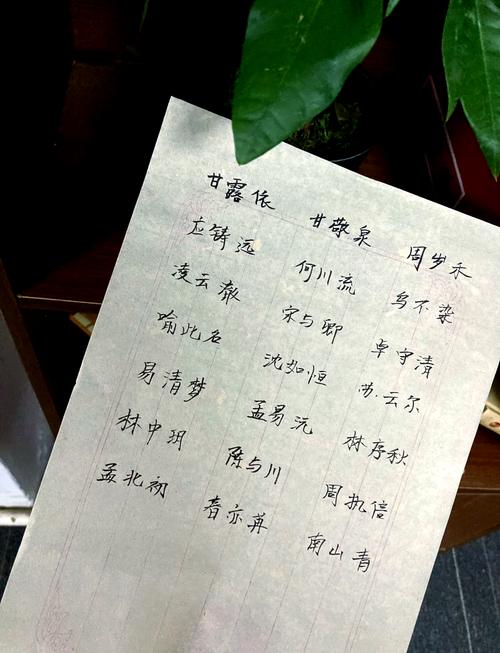 甘露依 甘敬泉 周岁禾
应铸远 何川流 乌不染
凌云澈 宋与卿 卓守清
喻此名 沈如恒 苏云尔
易清梦 孟易沅 林序秋
林中玥 陈与川 周执倍
孟北初 春亦苒 南山青